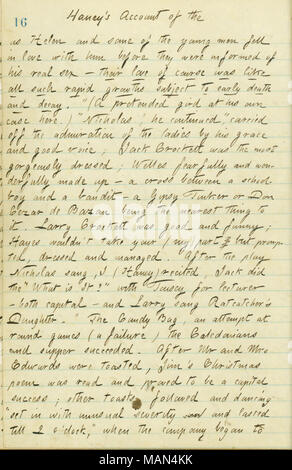 16
Haney's Account of the
as Helen and some of the young men fell
in love with him before they were informed of
his real sex — their love of course was like
all such rapid growths subject to early death
and decay. "(A pretended gird at his own
case here.)" Nicholas, he continued "carried
off the admiration of the ladies by his grace
and good voice. Jack Crockett was the most
gorgeously dressed; Welles fearfully and won-
derfully made up — a cross between a school
boy and a bandit — a Gypsy Tinker or Don
Cezar de Bazan being the nearest thing to
it. Larry Crockett was good and funny;
Hayes wouldn't take your (my part) but promp-
ted, dressed and managed. After the play
Nicholas sang, I (Haney) recited, Jack did
the "What is It?" with Tousey for lecturer
— both capital — and Larry sang Ratcatcher's
Daughter. The Candy Bag, an attempt at
round games (a failure), the Caledonians
and supper succeeded. After Mr and Mrs
Edwards were toasted, Jim's Christmas
poem was read and proved to be a capital
success; other toasts followed and dancing
"set in with unusual severity and lasted
till 2 o'clock," when the company began to
alamy
Image ID: MAN4KK
www.alamy.com